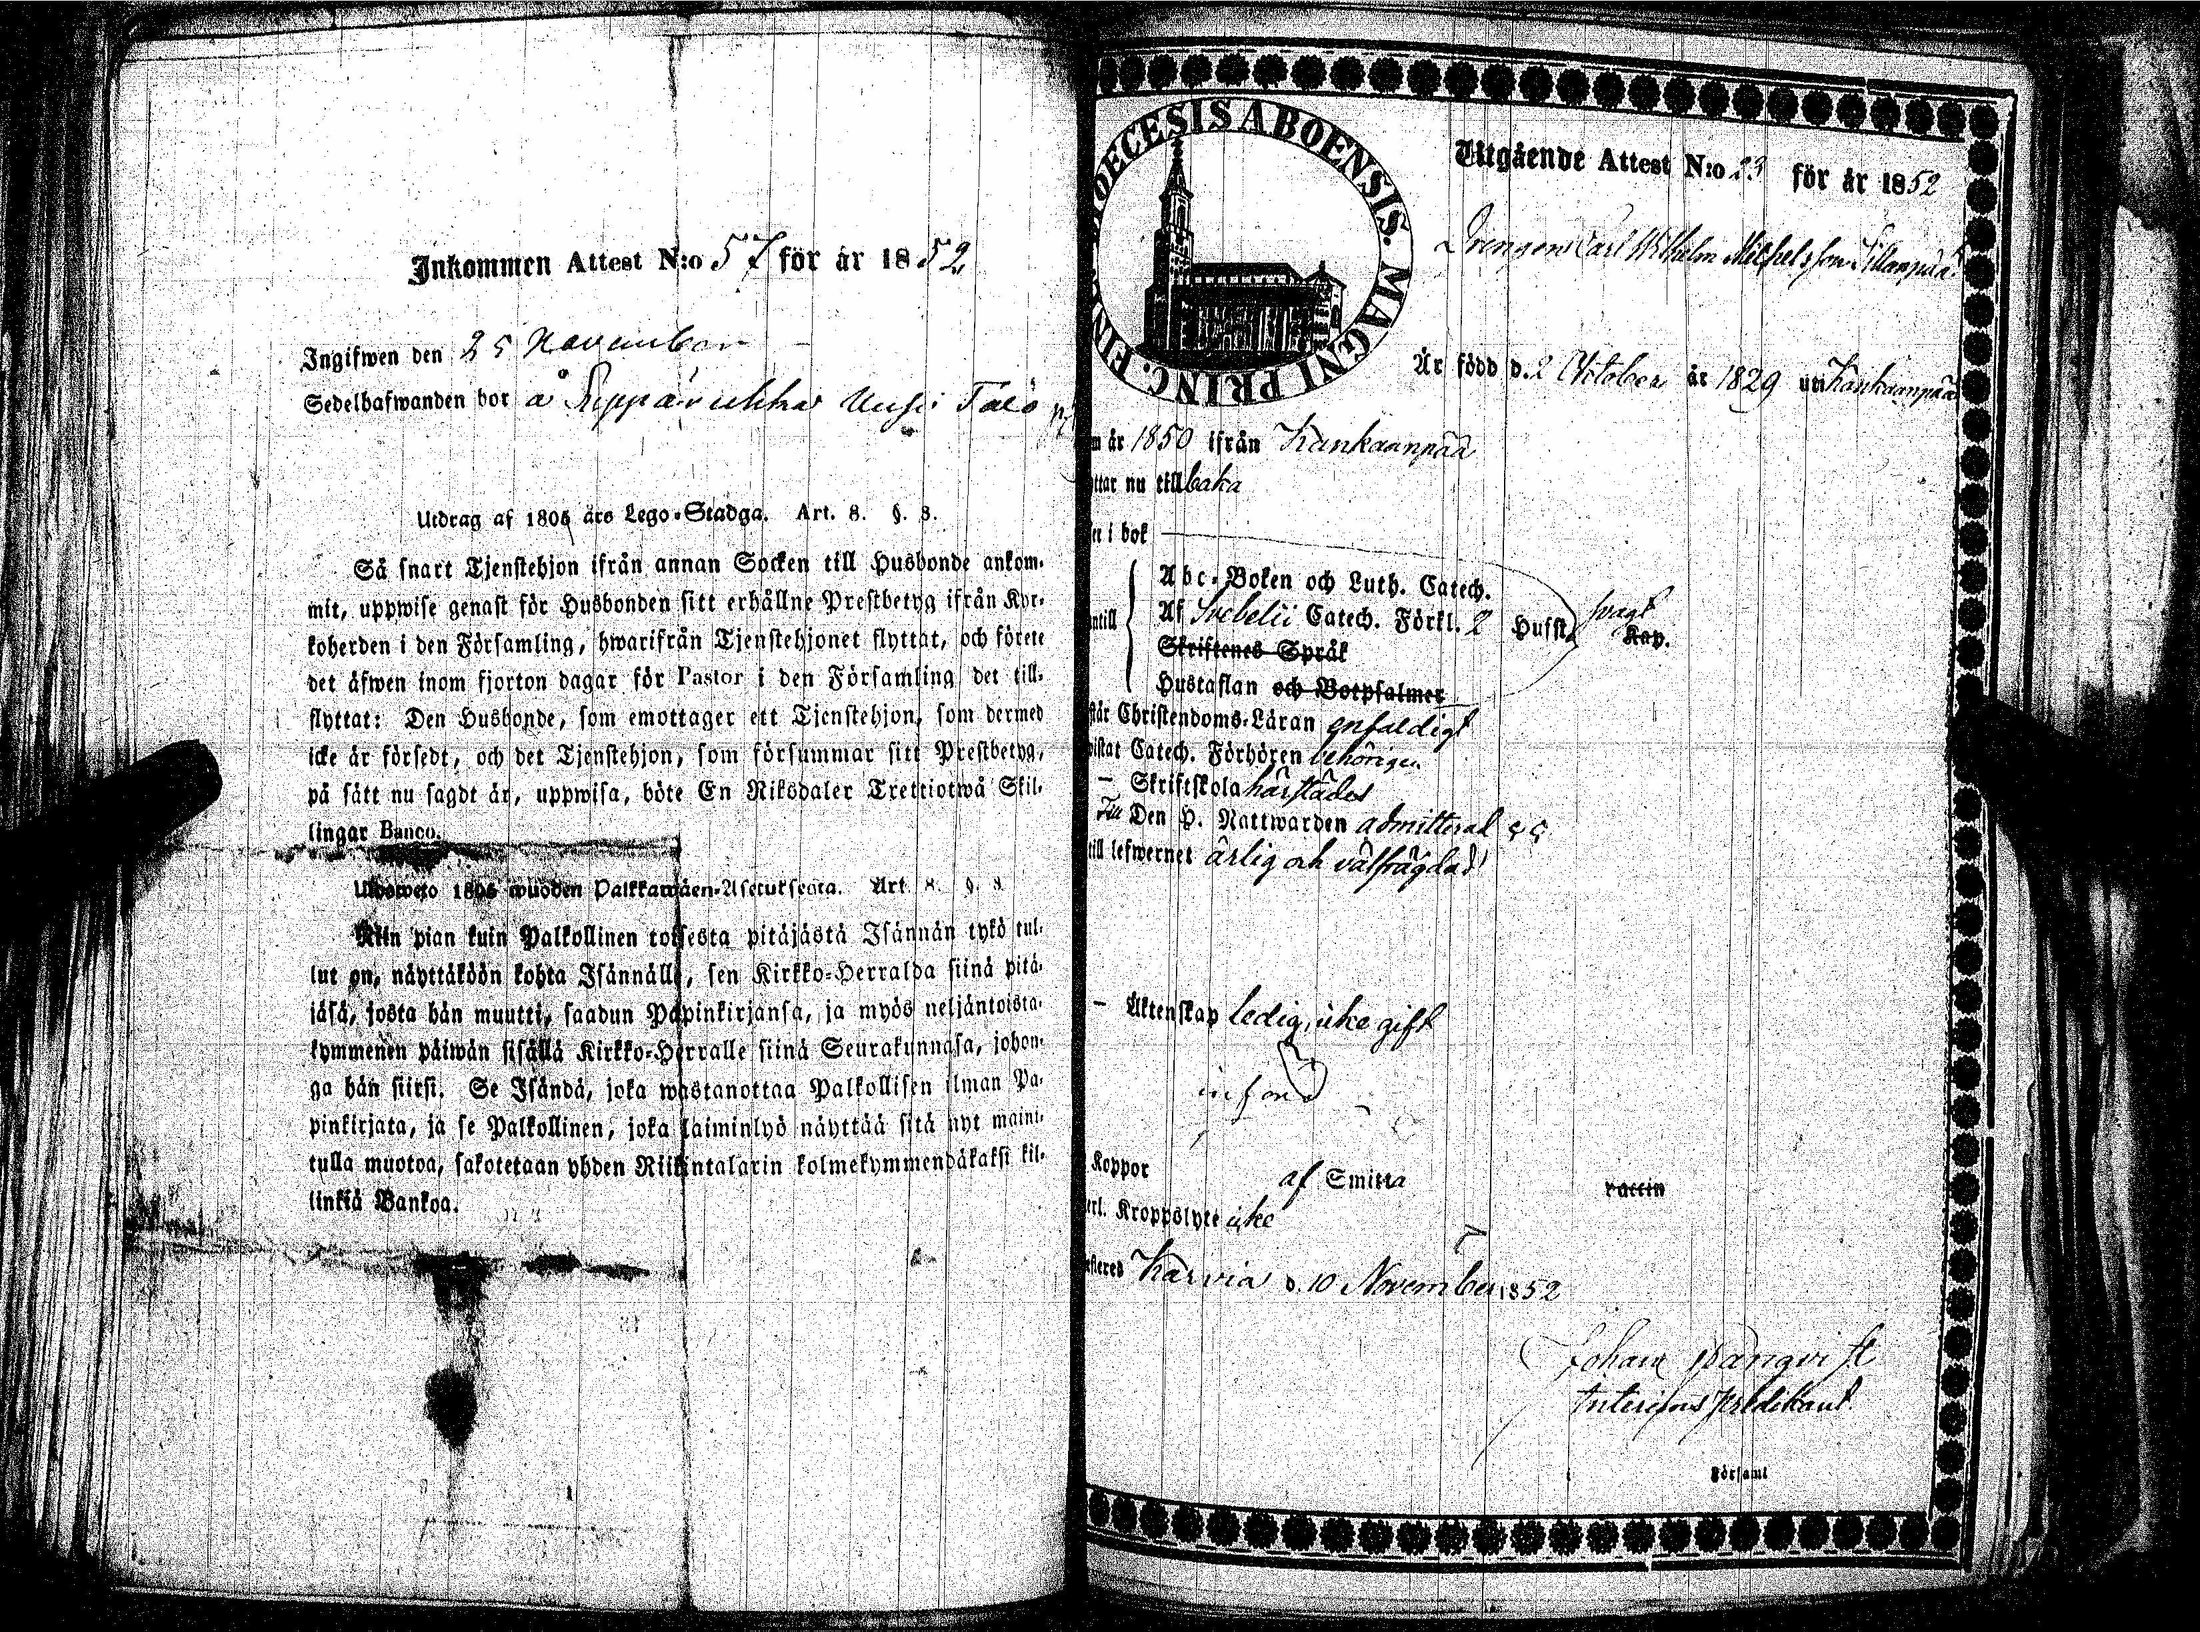 Inkommen Attest N:o 57 för år 1852
Ingifwen den 25 November
Sedelhafwanden bor å Leppäruhka Uusi Talo
Utdrag af 1805 års Lego-Stadga. Art. 8. §. 8.
Så snart Tjenstehjon ifrån annan Socken till Husbonde ankom-
mit, uppwise genast för Husbonden sitt erhållne Prestbetyg ifrån Kyr-
koherden i den Församling, hwarifrån Tjenstehjonet flyttat, och förete
det äfwen inom fjorton dagar för Pastor i den Församling det till-
flyttat: Den Husbonde, som emottager ett Tjenstehjon, som dermed
icke är försedt, och det Tjenstehjon, som försummar sitt Prestbetyg,
på sätt nu sagdt är, uppwisa, böte En Riksdaler Trettiotwå Skil-
lingar Banco.
Ulosweto 1805 wuoden Palkkawäen-Asetuksesta. Art. 8. §. 8
Niin pian kuin Palkollinen toisesta pitäjästä Isännän tykö tul-
lut on, näyttäköön kohta Isännälle, sen Kirkko-Herralda siinä pitä-
jäsä, josta hän muutti, saadun Papinkirjansa, ja myös neljäntoista-
kymmenen päiwän sisällä Kirkko-Herralle siinä Seurakunnasa, johon-
ga hän siirsi. Se Isändä, joka wastanottaa Palkollisen ilman Pa-
pinkirjata, ja se Palkollinen, joka laiminlyö näyttää sitä nyt maini-
tulla muotoa, sakotetaan yhden Riikintalarin kolmekymmendäkaksi kil-
linkiä Bankoa.
DIOECESIS ABOENSIS. MAGNI PRINC. FINL
Utgående Attest N:o 23 för år 1852
Drengen Carl Wilhelm Michelsson Sillanpää
Är född d. 2 October år 1829 uti Kankaanpää
m år 1850 ifrån Kankaanpää
ttar nu tillbaka
er i bok
Abc-Boken och Luth. Catech.
ntill Af Svebelii Catech. Förkl. 2 Hufst. svagt Kap.
Skriftenes Språk
Hustaflan och Botpsalmer
står Christendoms-Läran enfaldigt
vistat Catech. Förhören behörigen
— Skriftskola härstädes
Till Den H. Nattwarden admitterad
till lefwernet ärlig och välfrägdad
— Äktenskap ledig, icke gift
Koppor af Smitta
erl. Kroppslyte icke
esteres Karvia d. 10 November 1852
Johan
Interims predikant.
Församl